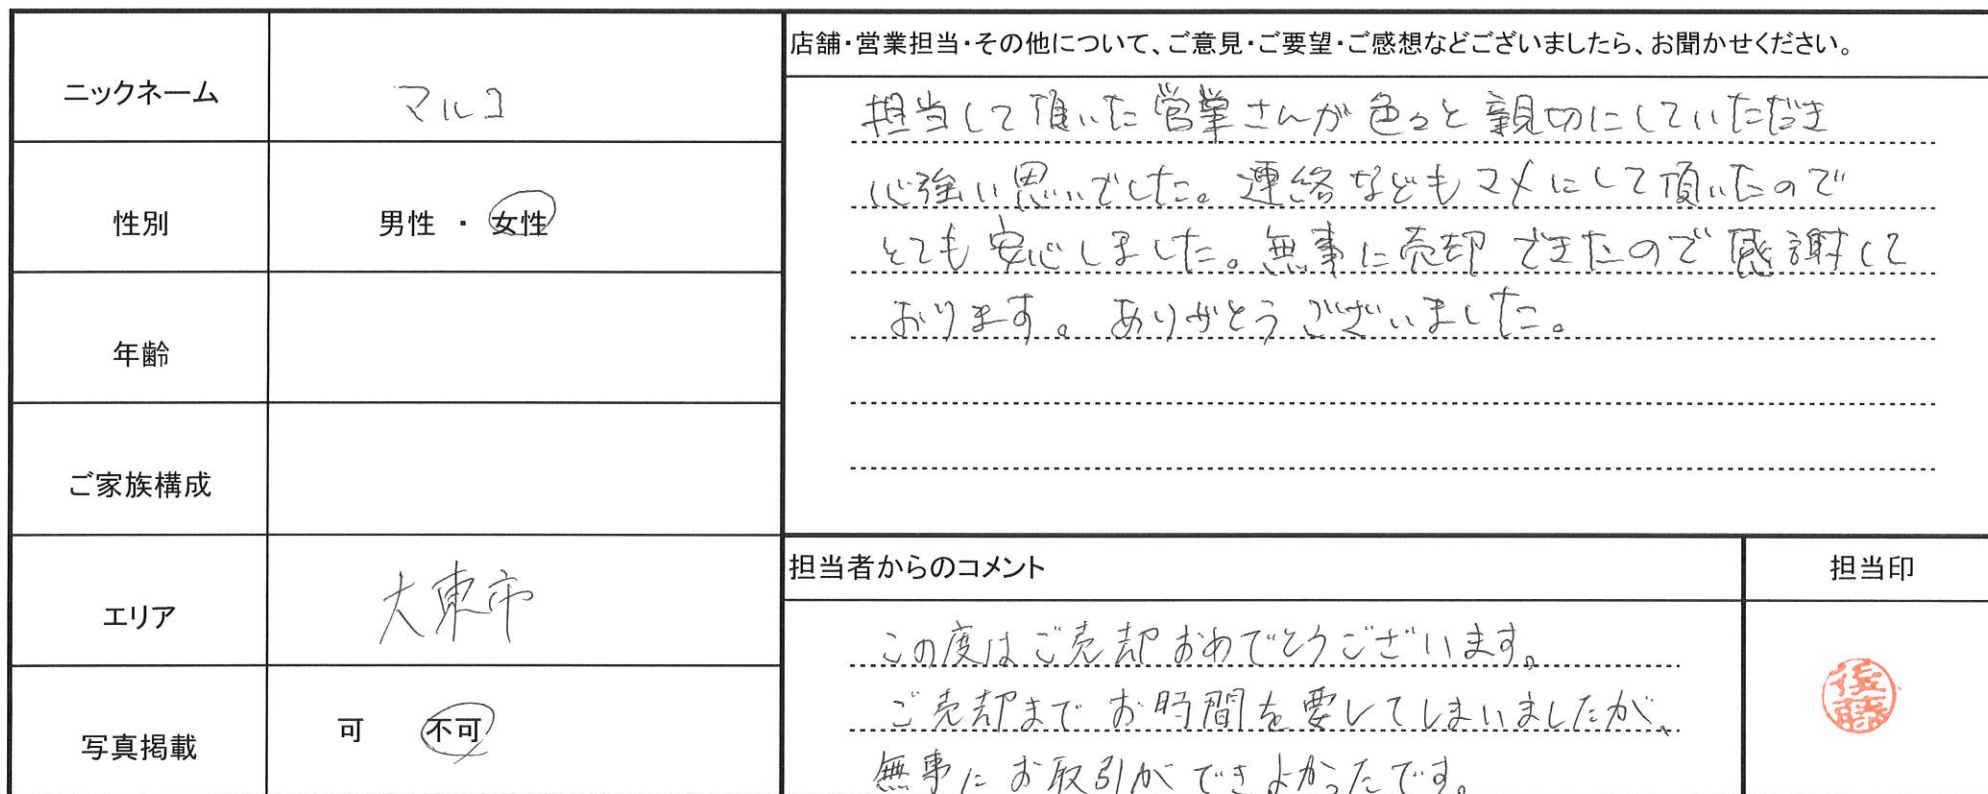 ニックネーム
マルコ
性別
男性 ・ 女性
年齢
ご家族構成
エリア
大東市
写真掲載
可 不可
店舗・営業担当・その他について、ご意見・ご要望・ご感想などございましたら、お聞かせください。
担当して頂いた営業さんが色々と親切にしていただき
心強い思いでした。連絡などもマメにして頂いたので
とても安心しました。無事に売却できたので感謝して
おります。ありがとうございました。
担当者からのコメント
この度はご売却おめでとうございます。
ご売却までお時間を要してしまいましたが、
無事にお取引ができよかったです。
担当印
後藤